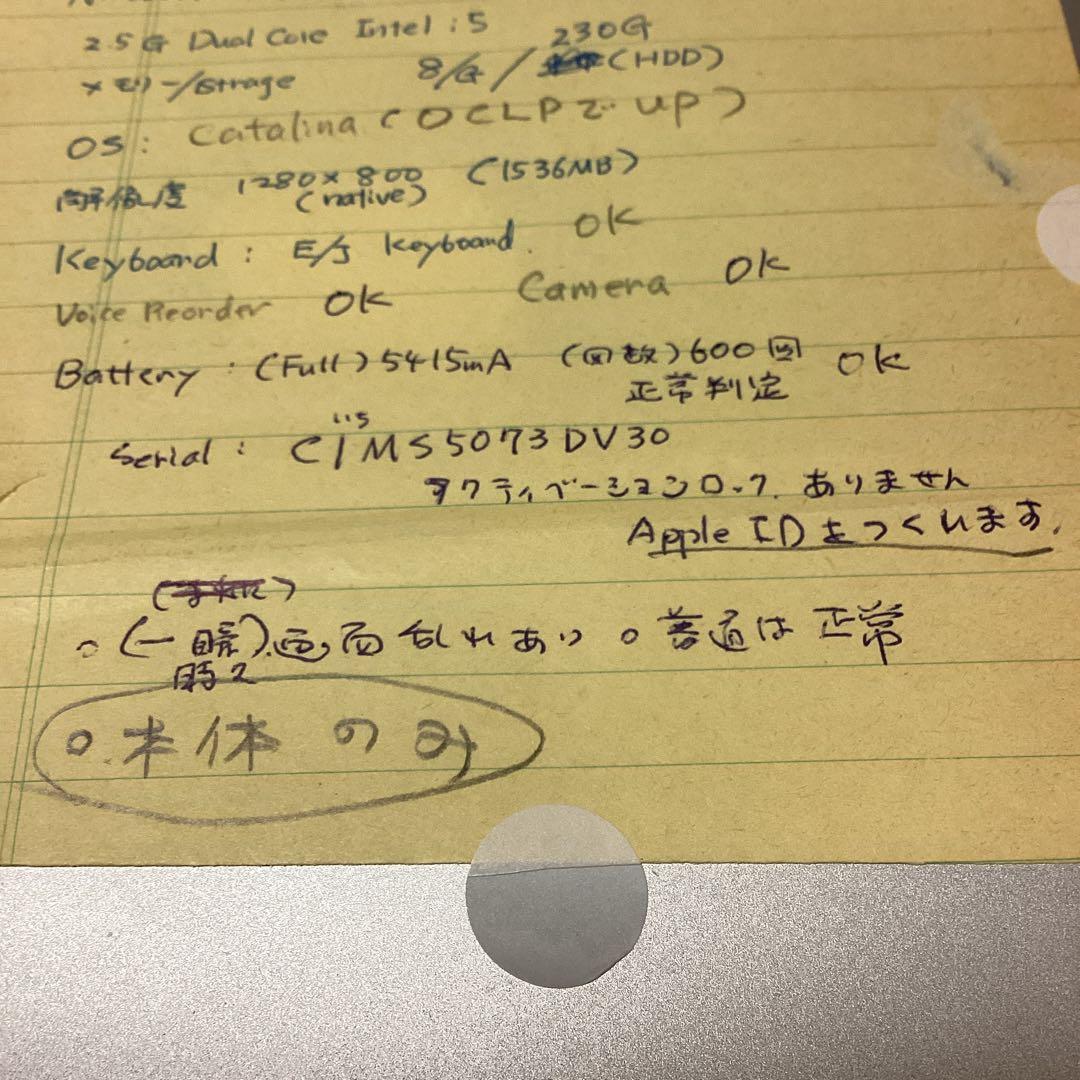 2.5G Dual Core Intel i5
メモリー/Strage 8/G / 230G (HDD)
OS: Catalina (OCLPでup)
解像度 1280×800 (native) (1536MB)
Keyboard: E/J keyboard. OK
Voice Reorder OK Camera OK
Battery: (Full) 5415mA (回数) 600回 OK
正常判定
Serial: C1MS5073DV30
アクティベーションロック. ありません
Apple IDをつくれます.
○(一瞬)画面乱れあり ○普通は正常
時々
○本体のみ